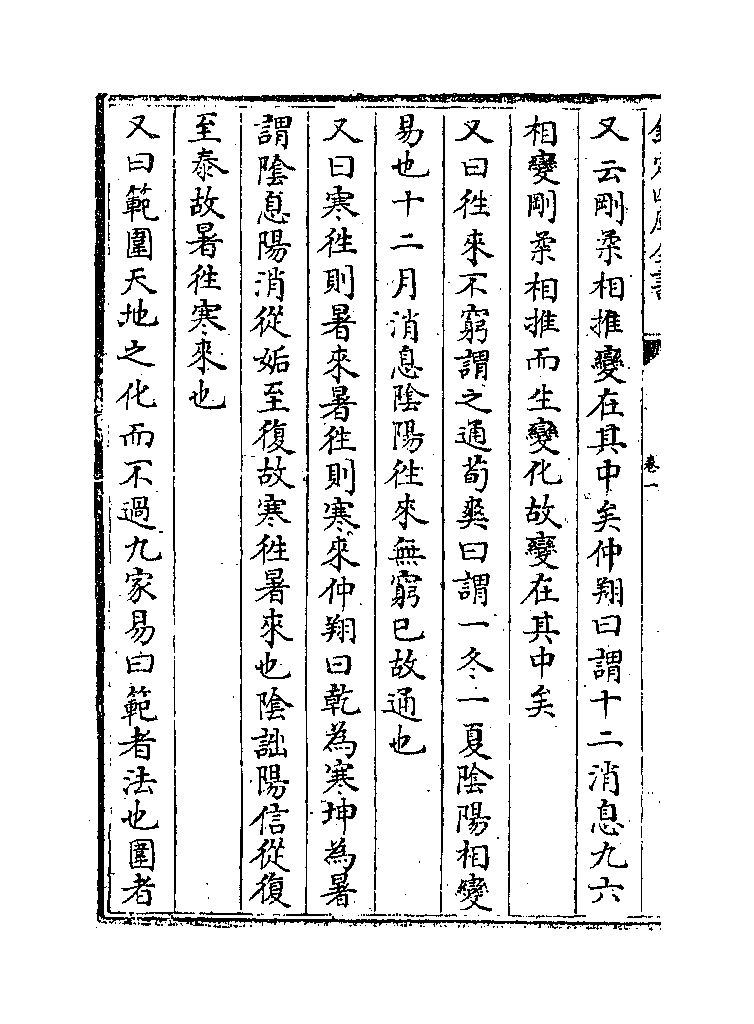 又云剛柔相推變在其中矣仲翔曰謂十二消息九六
相變剛柔相推而生變化故變在其中矣
又曰徃來不窮謂之通荀爽曰謂一冬一夏陰陽相變
易也十二月消息陰陽徃來無窮已故通也
又曰寒徃則暑來暑徃則寒來仲翔曰乾為寒坤為暑
謂陰息陽消從姤至復故寒徃暑來也陰詘陽信從復
至泰故暑徃寒來也
又曰範圍天地之化而不過九家易曰範者法也圍者
卷一